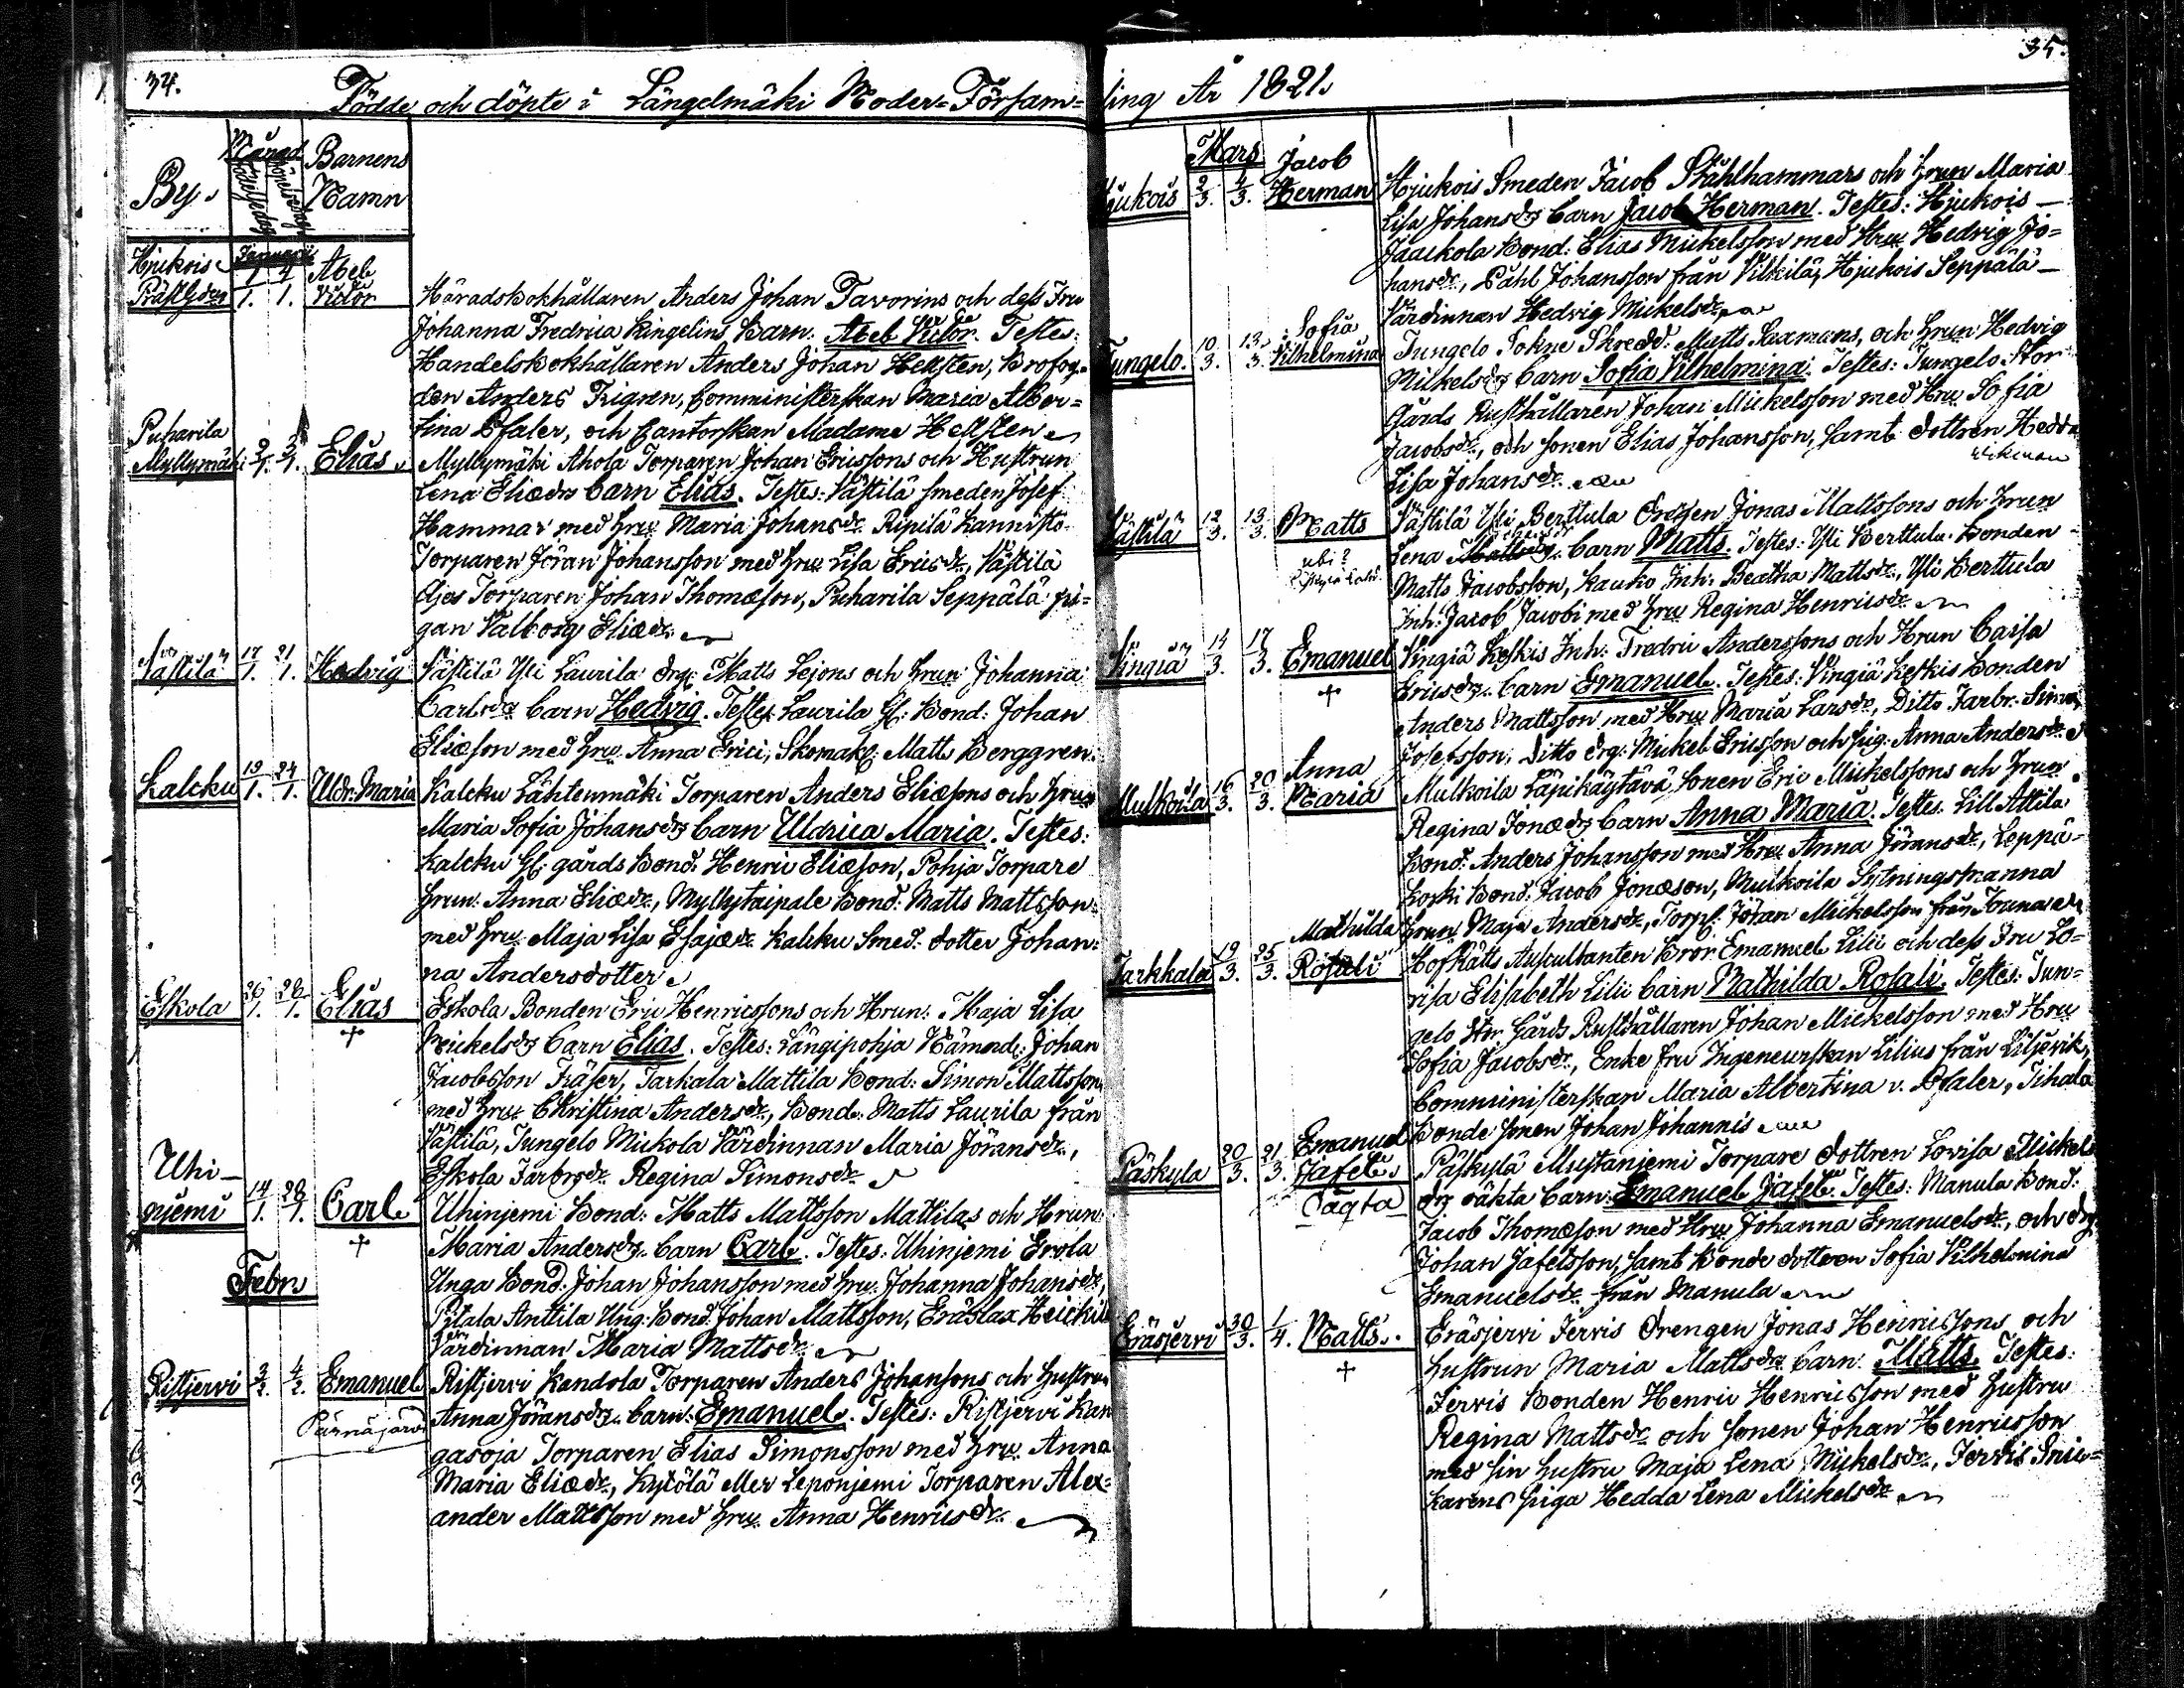 34.
Födde och döpte i Längelmäki Moder=Försam=
By.
Månad
Födelsedag
Döpelsedag
Barnens
Namn
Hjukois
Prästgården
Januarii
1/1. 4/1.
Abel
Victor
Häradsbokhållaren Anders Johan Favorins och dess Fru
Johanna Fredrica Ringelins Barn: Abel Victor. Testes:
Handelsbokhållaren Anders Johan Hellsten, Brofog=
den Anders Frigren, Comministerskan Maria Alber=
tina Pfaler, och Cantorskan Madame Hellsten
Puharila
Myllymäki 2/1. 3/1. Elias.
Myllymäki Ahola Torparen Johan Ericssons och Hustrun
Lena Eliædrs barn Elias. Testes: Västilä smeden Josef
Hammar med hru Maria Johansdr. Ripilä Kannisto
Torparen Jöran Johansson med hru Lisa Ericsdr., Västilä
Torparen Johan Thomæson, Puharila Seppälä pi=
gan Valborg Eliædr.
Västilä 17/1. 21/1. Hedvig
Västilä Yli Laurila drg: Matts Lejons och hrun Johanna
Carlsdrs barn Hedvig. Testes Laurila Gl: Bond: Johan
Eliæson med hru Anna Erici, Skomak: Matts Berggren.
Kalcku 19/1. 24/1. Uldr: Maria
Kalcku Lähtenmäki Torparen Anders Eliæsons och hrun
Maria Sofia Johansdrs barn Uldrica Maria. Testes:
Kalcku Gl: gårds Bond: Henric Eliæson, Pohja Torpare
hrun Anna Eliædr., Myllytaipale Bond: Matts Mattsson
med hru Maja Lisa Esajædr. Kalcku Smed. dotter Johan=
na Andersdotter
Eskola 26/1. 28/1. Elias
+
Eskola Bonden Eric Henricssons och Hrun: Maja Lisa
Mickelsdrs Barn Elias. Testes: Längipohja Nämnd: Johan
Jacobsson Fräser, Tarkala Mattila Bond: Simon Mattsson
med hru Christina Andersdr., Bond: Matts Laurila från
Västilä, Jungelo Mickola Värdinnan Maria Jöransdr.,
Eskola Farbrsdr. Regina Simonsdr.
Uhi-
njemi 14/1. 28/1. Carl
+
Uhinjemi Bond: Matts Mattsson Mattilas och Hrun:
Maria Andersdrs barn Carl. Testes: Uhinjemi Erola
Unga Bond: Johan Johansson med hru: Johanna Johansdr,
Pitala Anttila Ung: Bond: Johan Mattsson, Eräslax Heickilä
Värdinnan Maria Mattsdr.
Febr.
Ristjervi 3/2. 4/2. Emanuel
Pärnäjärvi
Ristjervi Kandola Torparen Anders Johansons och hustrun
Anna Jöransdrs barn: Emanuel. Testes: Ristjervi Kan
gasoja Torparen Elias Simonsson med hru Anna
Maria Eliædr., Kytölä eller Leponjemi Torparen Alex=
ander Mattsson med hru Anna Henricsdr.
35.
ling År 1821.
Mars
Hjukois 2/3. 4/3. Jacob
Herman
Hjukois Smeden Jacob Ståhlhammars och hrun Maria
Lisa Johansdrs barn Jacob Herman. Testes: Hjukois
Jaackola Bond: Elias Mickelsson med Hru Hedvig Jo=
hansdr., Påhl Johansson från Vilkilä, Hjukois Seppälä
Värdinnan Hedvig Mickelsdr.
Jungelo. 10/3. 13/3. Sofia
Vilhelmina
Jungelo Sokne Skredd: Matts Laxmans, och hrun Hedvig
Mickelsdrs barn Sofia Vilhelmina. Testes: Jungelo Stor
Gårds Rusthållaren Johan Mickelsson med Hru Sofia
Jacobsdr., och sonen Elias Johansson, samt dottren Hedda
Lisa Johansdr.
Västilä 12/3. 13/3. Matts
ubi?
Västilä Yli Berttula Drengen Jonas Mattssons och hrun
Lena barn Matts. Testes: Yli Berttula Bonden
Matts Jacobsson, Kauko Inh: Beatha Mattsdr., Yli Berttula
Inh: Jacob Jacobi med hru Regina Henricsdr.
Vingiä 14/3. 17/3. Emanuel
+
Vingiä Keskis Inh: Fredric Anderssons och Hrun Caisa
Ericsdrs barn Emanuel. Testes: Vingiä Keskis Bonden
Anders Mattsson med Hru Maria Larsdr., Ditto Farbr: Simon
Josefsson, ditto drg: Mickel Ericsson och pig: Anna Andersdr.
Mulkoila 16/3. 20/3. Anna
Maria
Mulkoila Läpikäytävä Sonen Eric Mickelssons och hrun
Regina Jonædrs barn Anna Maria. Testes: Lill Attila
Bond: Anders Johansson med Hru Anna Jöransdr., Leppä=
koski Bond: Jacob Jonæson, Mulkoila Sytningsmanna
hrun Maja Andersdr., Torp: Johan Mickelsson från
Tarkkala 19/3. 25/3. Mathilda
Rosali
Hofrätts Auscultanten Bror Emanuel Lilii och dess Fru Lo=
visa Elisabeth Lilii barn Mathilda Rosali. Testes: Jun=
gelo Stor Gårds Rusthållaren Johan Mickelsson med Hru
Sofia Jacobsdr., Enke fru Ingeneurskan Lilius från Liljevik,
Comministerskan Maria Albertina v. Pfaler, Tihala
Bonde sonen Johan Johannis
Päskylä 20/3. 21/3. Emanuel
Jafet.
Oäqta
Päskylä Mustanjemi Torpare dottren Lovisa Mickels
drs oäkta barn: Emanuel Jafet. Testes: Manula Bond:
Jacob Thomæson med Hru Johanna Emanuelsdr., och drg
Johan Jafetsson, samt Bonde dottren Sofia Vilhelmina
Emanuelsdr. från Manula
Eräsjervi 30/3. 1/4. Matts.
+
Eräsjervi Jervis Drengen Jonas Henricssons och
hustrun Maria Mattsdrs barn: Matts. Testes:
Jervis Bonden Henric Henricsson med hustru
Regina Mattsdr. och sonen Johan Henricsson
med sin hustru Maja Lena Mickelsdr., Jervis Snic=
karens piga Hedda Lena Mickelsdr